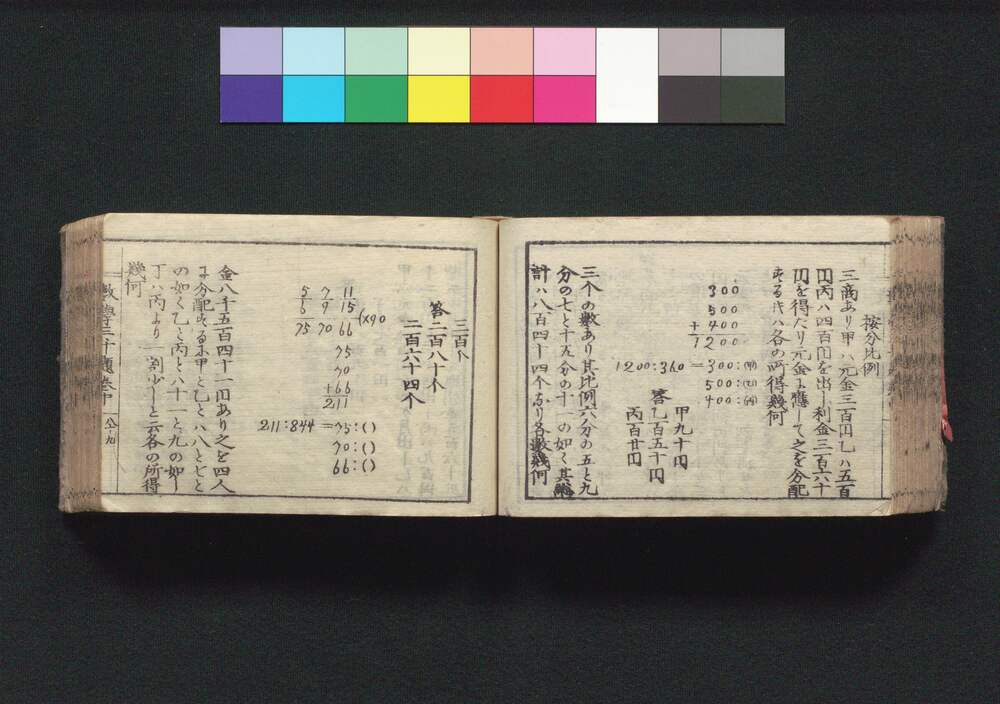 按分比例
三商あり甲ハ元金三百円乙ハ五百
円丙ハ四百円を出し利金三百六十
円を得たり元金に應して之を分配
するトキハ各の所得幾何
300
500
+400
1200
1200:360=300:(甲)
500:(乙)
400:(丙)
甲九十円
答乙百五十円
丙百廿円
三个の数あり其比例六分の五と九
分の七と十五分の十一の如く其総
計ハ八百四十四个なり各数幾何
三百个
答二百八十个
二百六十四个
5 7 11
6 9 15 (×90
75 70 66
75
70
+66
211
211:844=75:()
70:()
66:()
金八千五百四十一円あり之を四人
に分配するに甲と乙とハ八と七と
の如く乙と丙とハ十一と九の如し
丁ハ丙より一割少しと云各の所得
幾何
数学三千題巻中